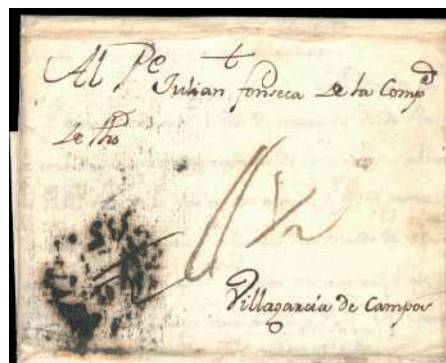 Al Pe Julian Fonseca de la Compa
de Jhs
Villagarcia de Campos